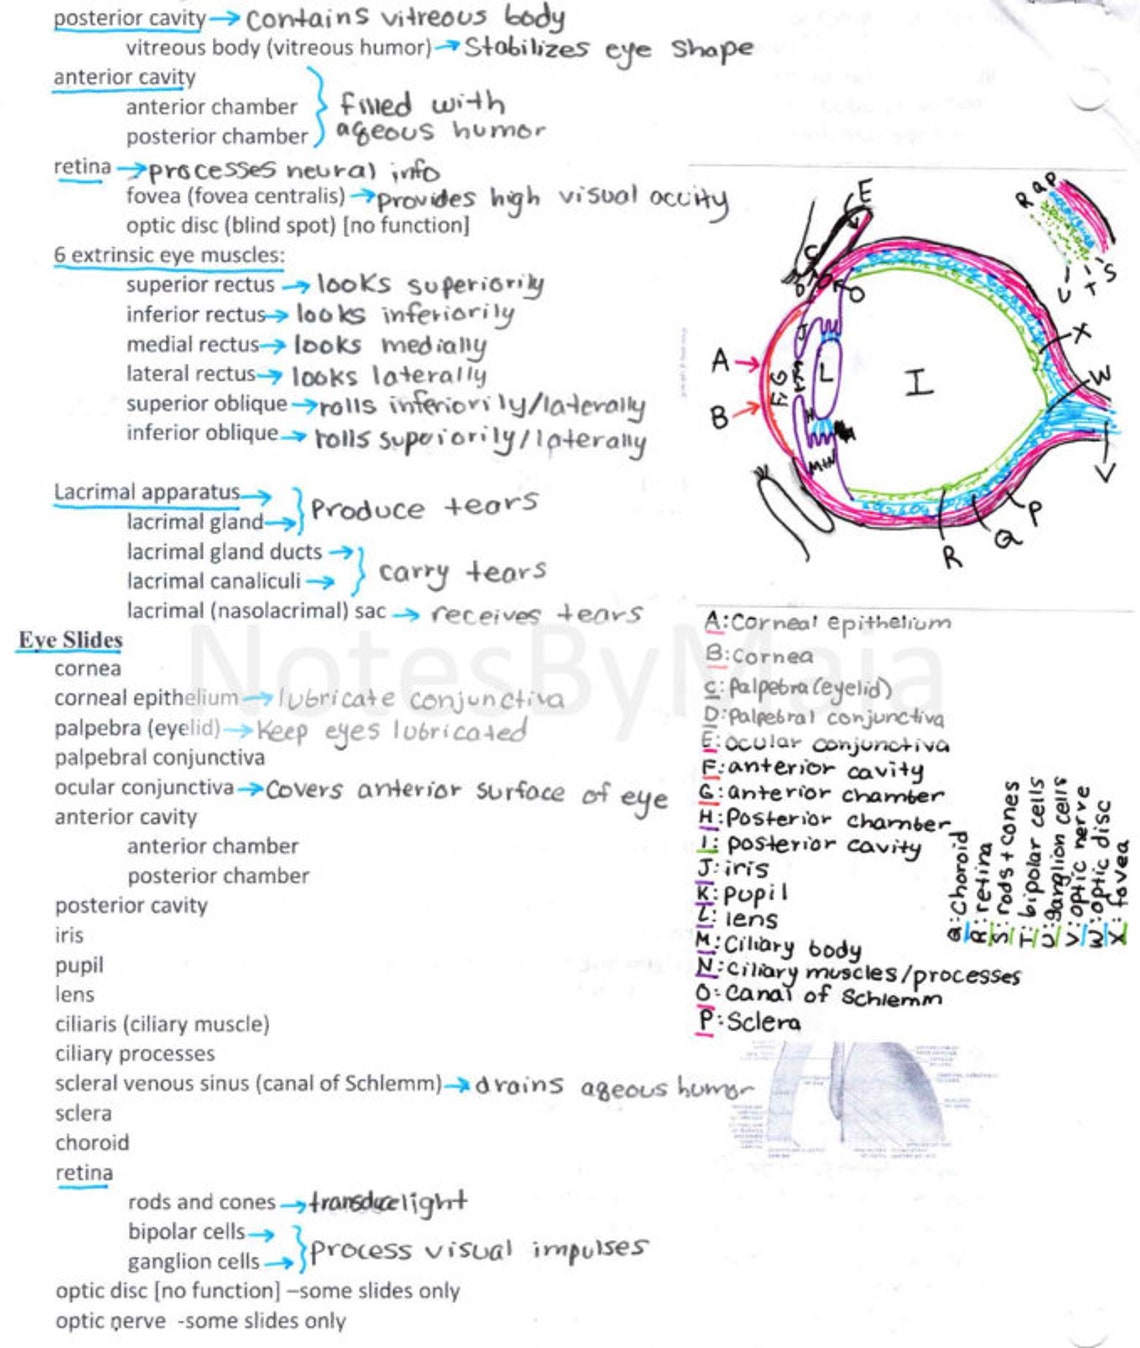 posterior cavity → contains vitreous body
vitreous body (vitreous humor) → Stabilizes eye shape
anterior cavity
anterior chamber
posterior chamber
} filled with
aqeous humor
retina → processes neural info
fovea (fovea centralis) → provides high visual accity
optic disc (blind spot) [no function]
6 extrinsic eye muscles:
superior rectus → looks superiorily
inferior rectus → looks inferiorily
medial rectus → looks medially
lateral rectus → looks laterally
superior oblique → rolls inferiorily/laterally
inferior oblique → rolls superiorily/laterally
Lacrimal apparatus →
lacrimal gland →
} Produce tears
lacrimal gland ducts →
lacrimal canaliculi →
} carry tears
lacrimal (nasolacrimal) sac → receives tears
Eye Slides
cornea
corneal epithelium → lubricate conjunctiva
palpebra (eyelid) → Keep eyes lubricated
palpebral conjunctiva
ocular conjunctiva → Covers anterior surface of eye
anterior cavity
anterior chamber
posterior chamber
posterior cavity
iris
pupil
lens
ciliaris (ciliary muscle)
ciliary processes
scleral venous sinus (canal of Schlemm) → drains aqeous humor
sclera
choroid
retina
rods and cones → transduce light
bipolar cells →
ganglion cells →
} Process visual impulses
optic disc [no function] –some slides only
optic nerve -some slides only
NotesByMaia
E
C
D
O
J
A
B
G
F
K
L
H
I
M+N
X
W
V
P
Q
R
R Q P
U T S
A: Corneal epithelium
B: Cornea
C: Palpebra (eyelid)
D: Palpebral conjunctiva
E: ocular conjunctiva
F: anterior cavity
G: anterior chamber
H: Posterior chamber
I: posterior cavity
J: iris
K: pupil
L: lens
M: Ciliary body
N: ciliary muscles/processes
O: Canal of Schlemm
P: Sclera
Q: Choroid
R: retina
S: rods + cones
T: bipolar cells
U: ganglion cells
V: optic nerve
W: optic disc
X: fovea